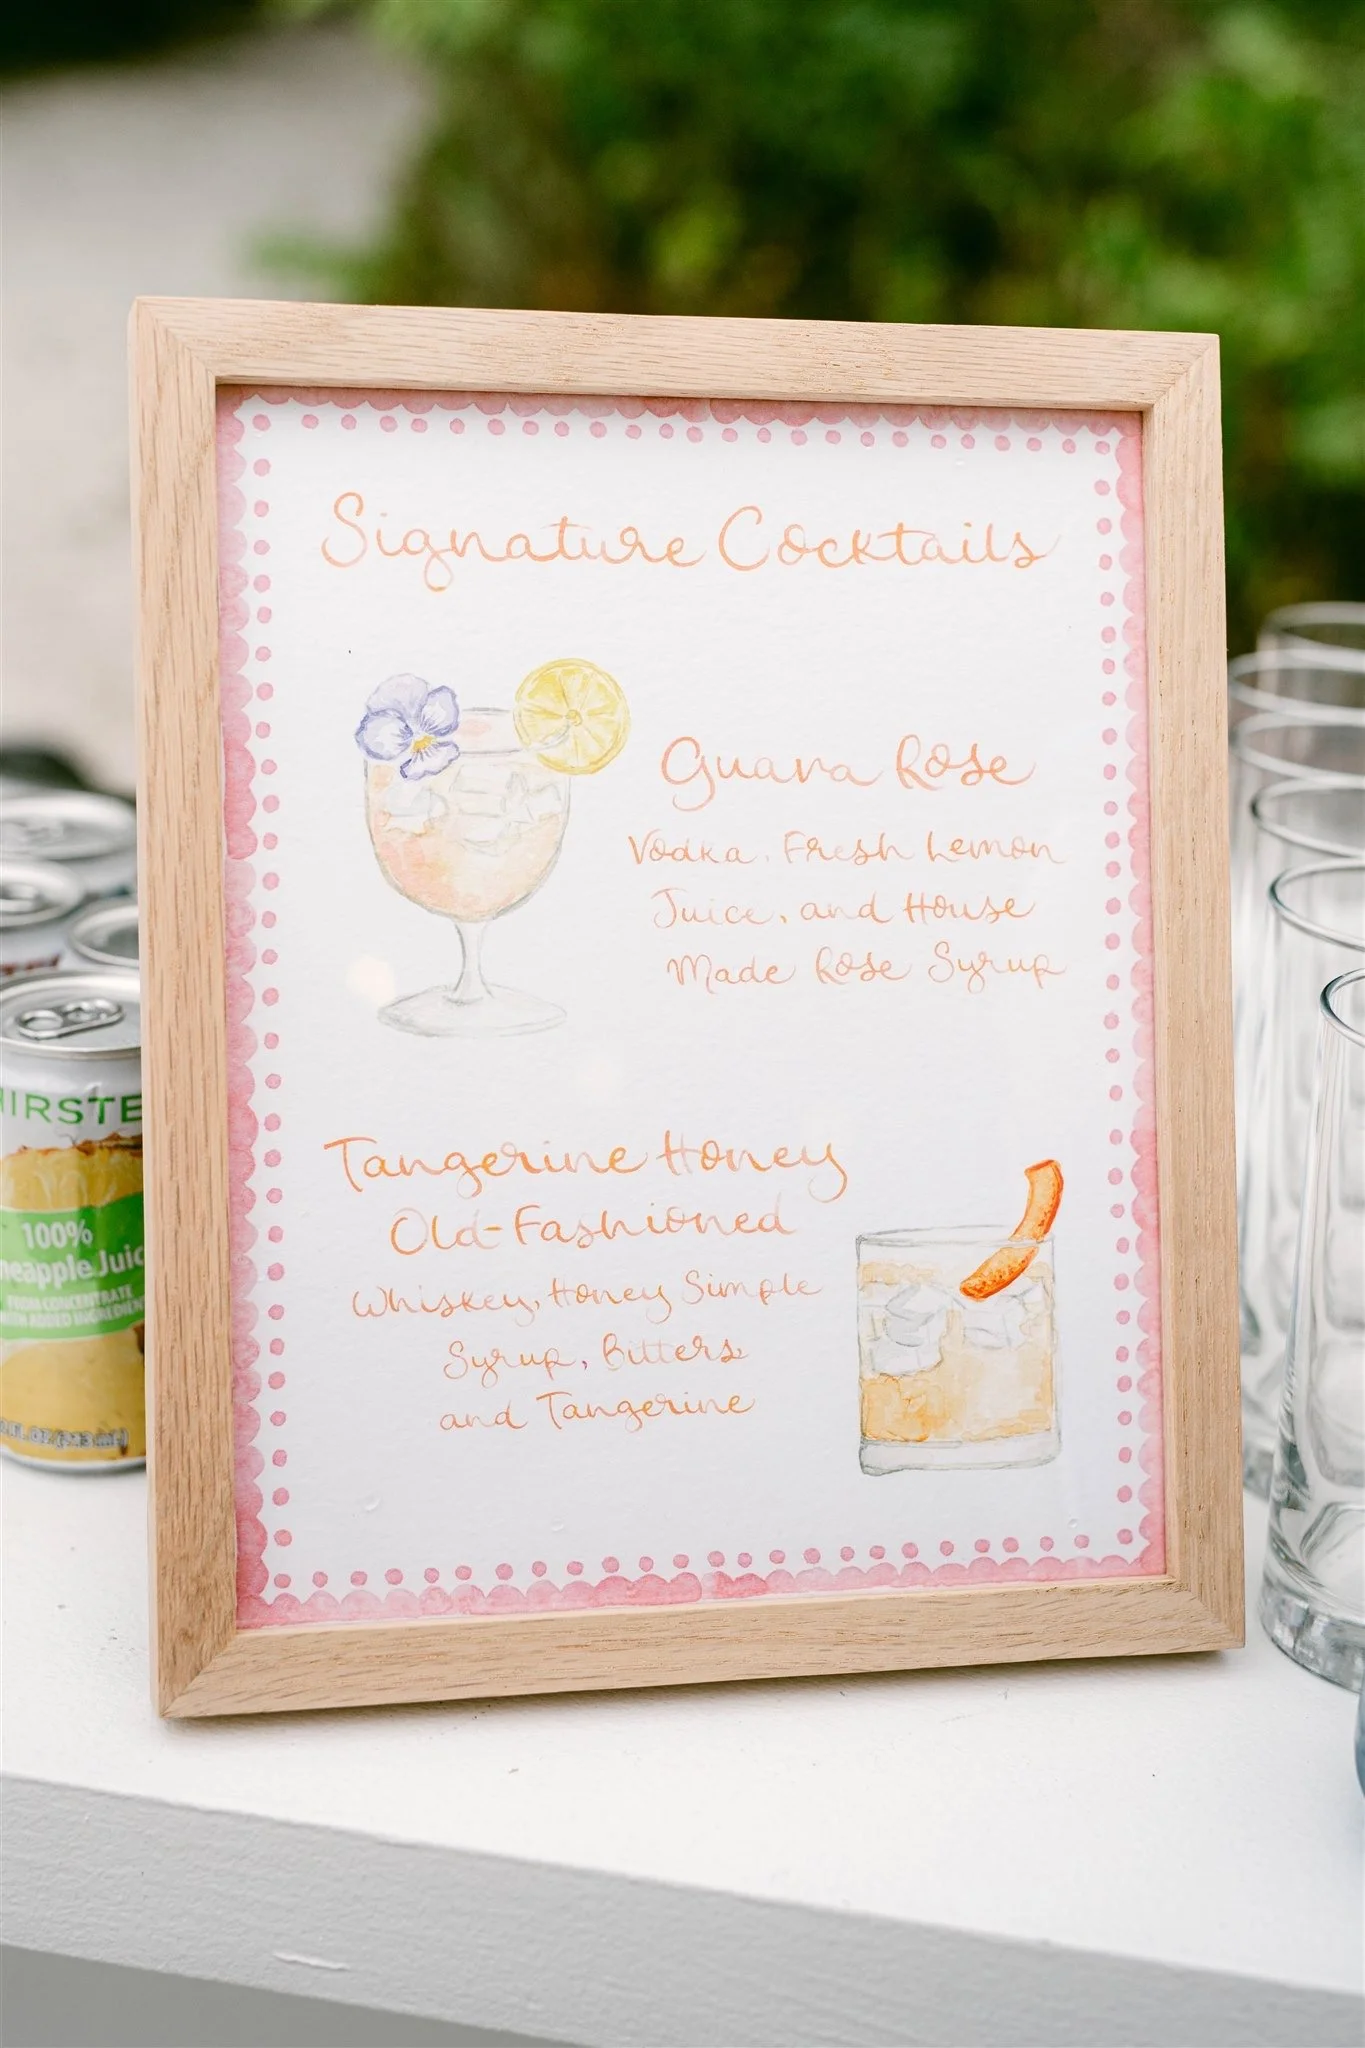 Signature Cocktails
Guava Rose
Vodka, Fresh Lemon
Juice, and House
Made Rose Syrup
Tangerine Honey
Old-Fashioned
Whiskey, Honey Simple
Syrup, Bitters
and Tangerine
100%
FROM CONCENTRATE